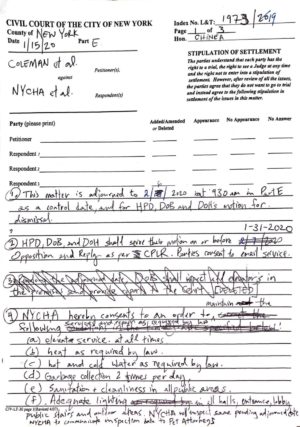 CIVIL COURT OF THE CITY OF NEW YORK
County of NEW YORK
Date 1/15/20 Part E
Index No. L&T: 1973/2019
Page 1 of 3
Hon. CHINEA
COLEMAN et al.
Petitioner(s),
against
NYCHA et al.
Respondent(s)
STIPULATION OF SETTLEMENT
The parties understand that each party has
the right to a trial, the right to see a Judge at any time
and the right not to enter into a stipulation of
settlement. However, after review of all the issues,
the parties agree that they do not want to go to trial
and instead agree to the following stipulation in
settlement of the issues in this matter.
Party (please print)
Added/Amended or Deleted
Appearance
No Appearance
No Answer
Petitioner
Respondent 1
Respondent 2
Respondent 3
① This matter is adjourned to 2/ /2020 at 930 am in Part E
as a control date, and for HPD, DOB and DOHs motion for
dismissal.
1-31-2020
② HPD, DOB, and DOH shall serve their motion on or before
Opposition and Reply as per CPLR. Parties consent to email service.
③
DELETED
④ NYCHA hereby consents to an order to, maintain the
following services and repair as required by law
(a) elevator service at all times
(b) heat as required by law.
(c) hot and cold water as required by law.
(d) Garbage collection 2 times per day
(e) Sanitation + cleanliness in all public areas.
(f) Adequate lighting in all halls, entrances, lobby
public stairs and outdoor areas. NYCHA will inspect same pending adjourned date
NYCHA to communicate inspection date to Pet Attorneys